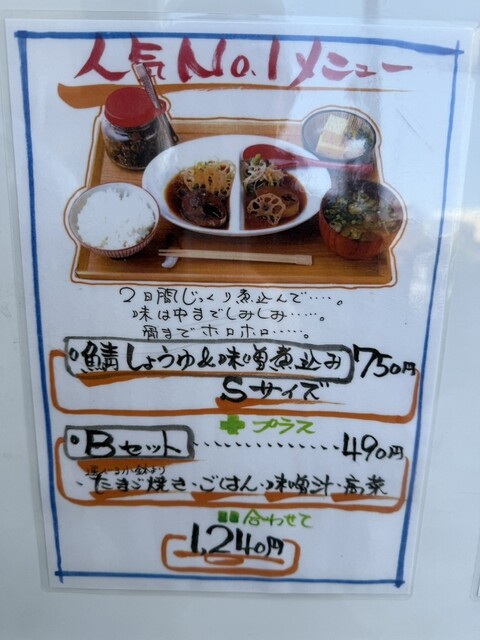 人気No.1メニュー
2日間じっくり煮込んで‥‥。
味は中までしみしみ‥‥。
骨までホロホロ‥‥。
鯖しょうゆ&味噌煮込み 750円
Sサイズ
➕プラス
・Bセット‥‥‥‥‥490円
選べる小鉢より
・たまご焼き・ごはん・味噌汁・高菜
〓合わせて
1,240円